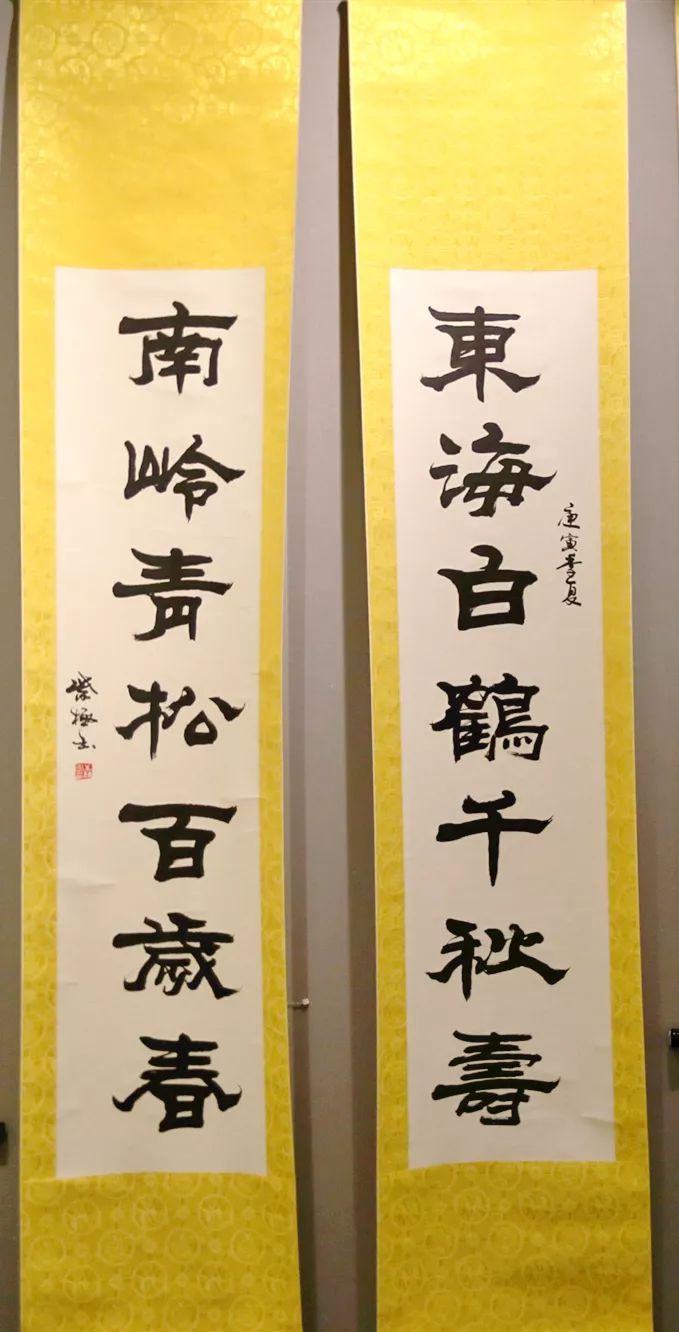 東海白鶴千秋壽
庚寅季夏
南岭青松百歲春
紫極書